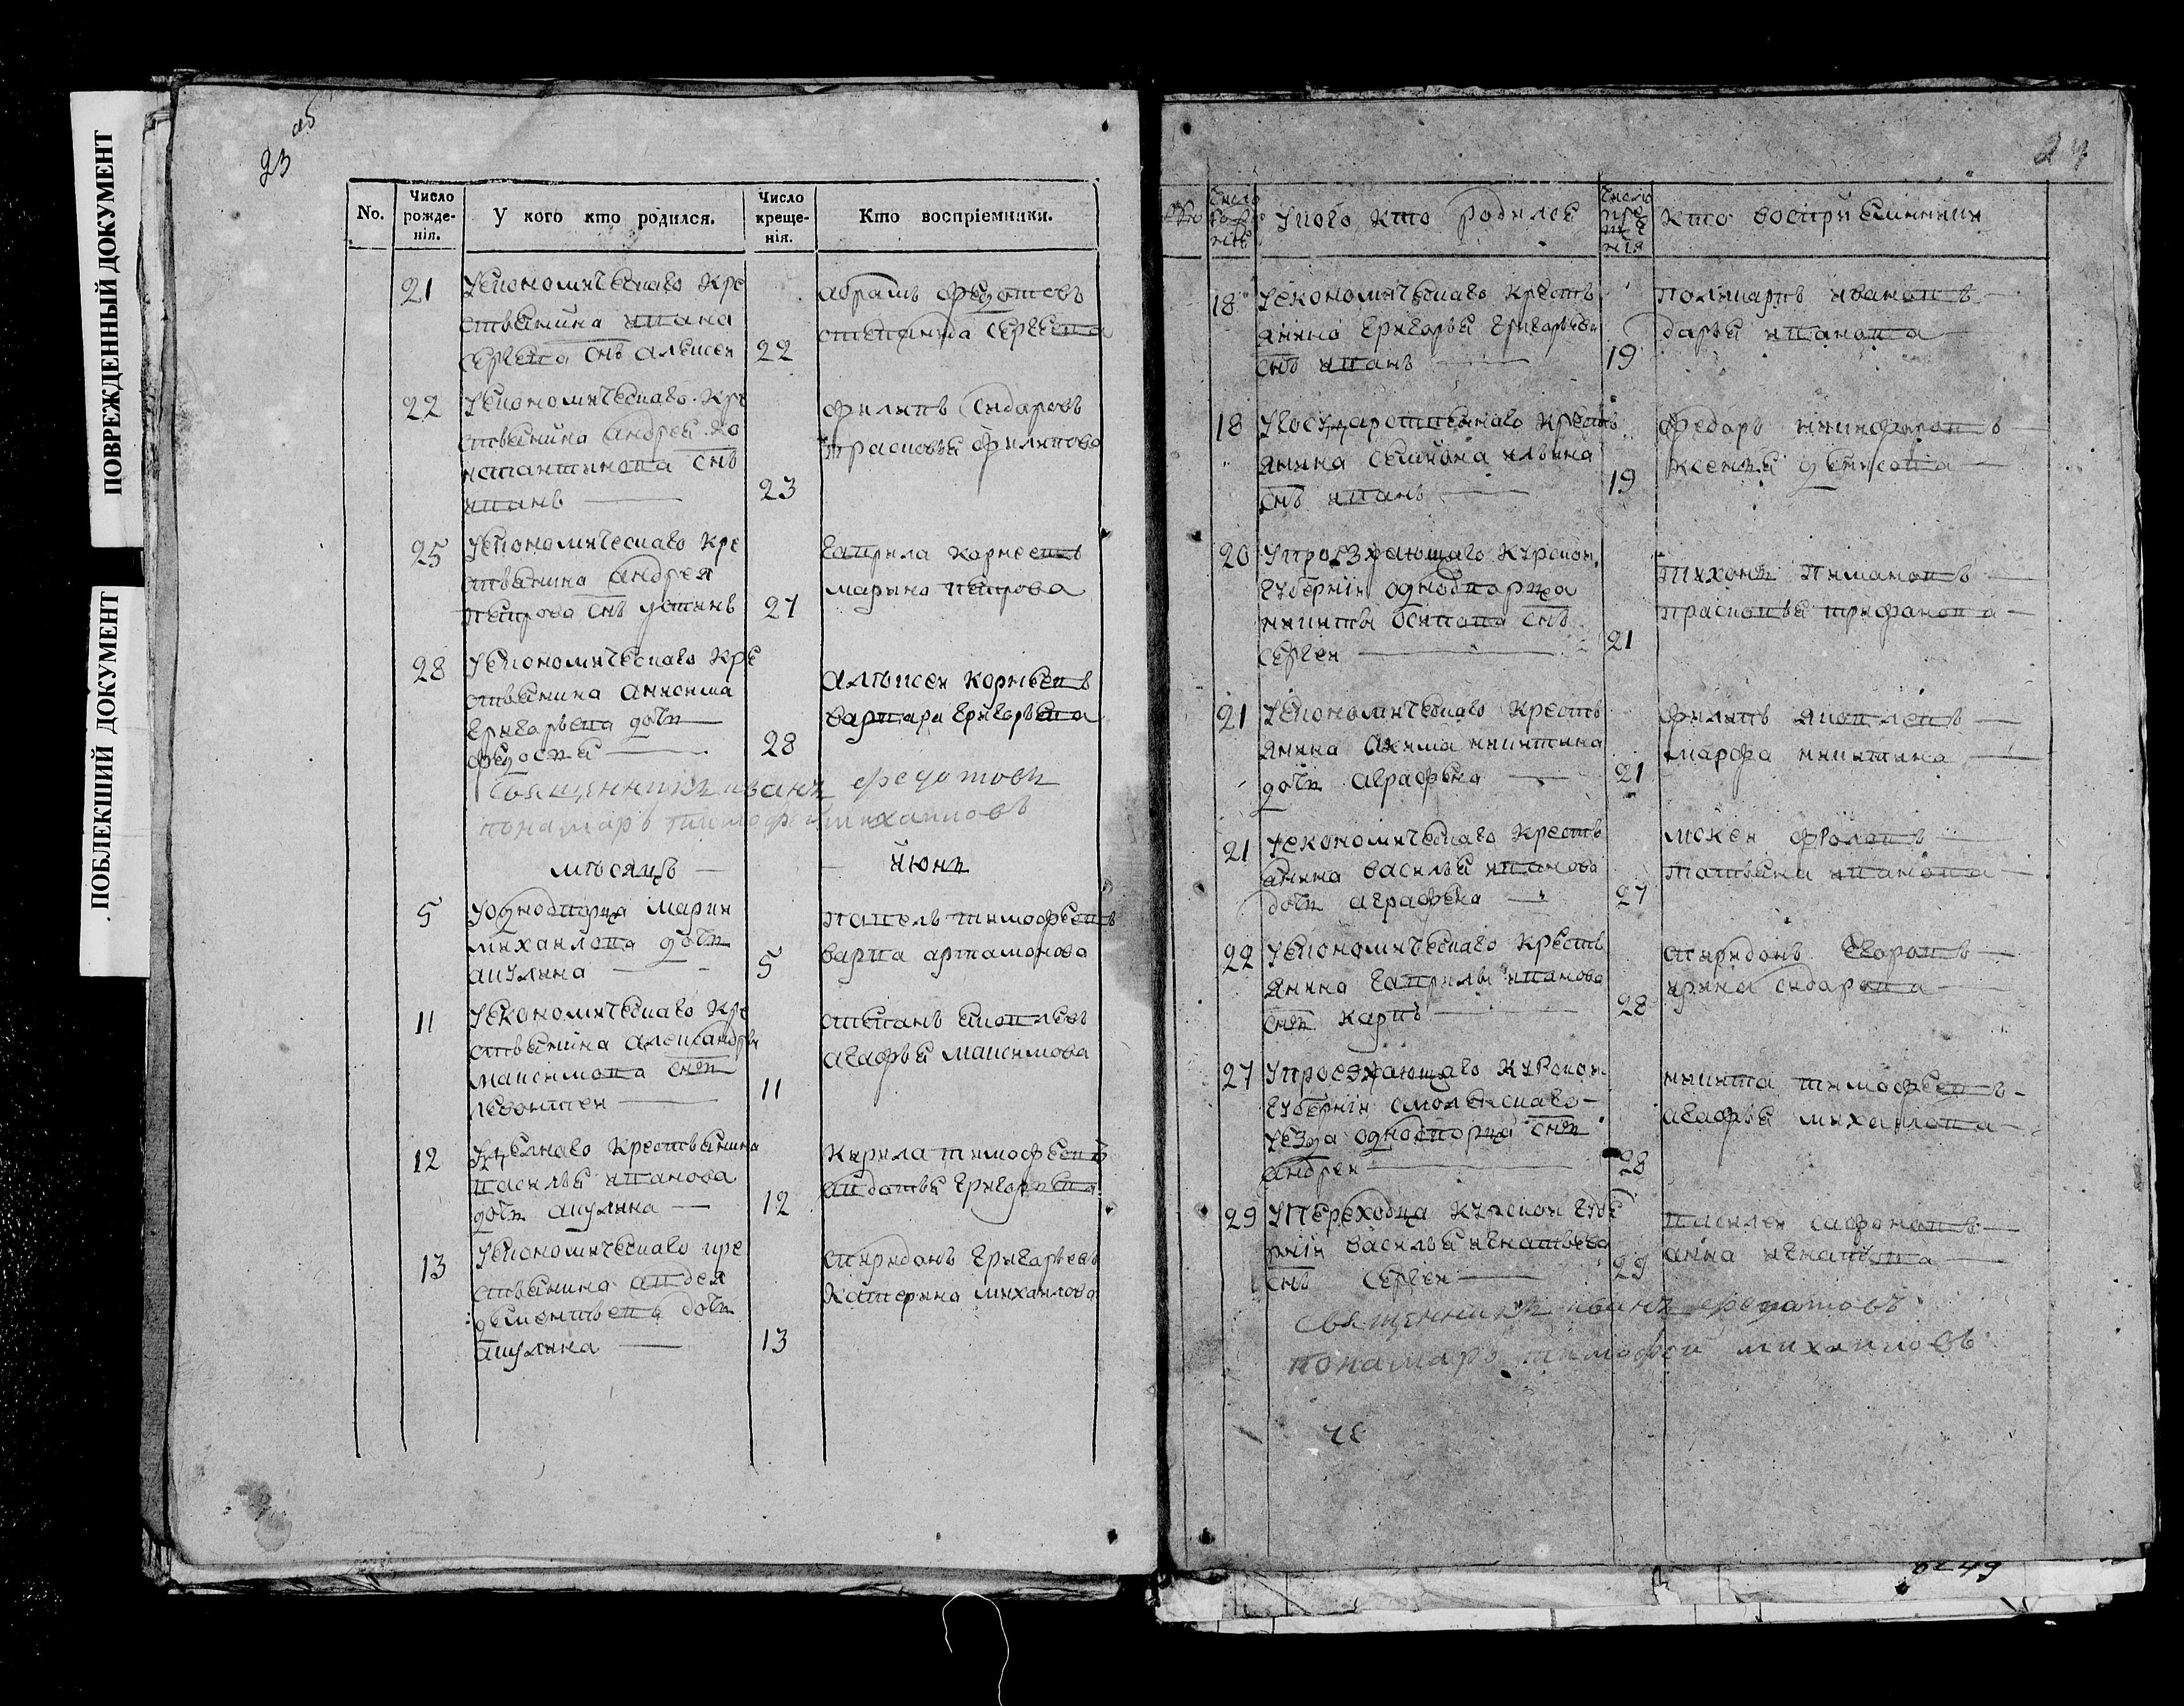 ПОВРЕЖДЕННЫЙ ДОКУМЕНТ
ПОБЛЕКШИЙ ДОКУМЕНТ
23 об
No.
Число рожде- нія.
У кого кто родился.
Число креще- нія.
Кто воспріемники.
21 Уекономическаго Кре
ствянина ивана
сергева снъ алексеи 22
абрамъ федотовъ
степанида сергеева
22 Уекономическаго Кре
ствянина андрея ко
нстантинова снъ
иванъ 23
филипъ сидаровъ
прасковья филипова
25 Уекономическаго Кре
ствянина андрея
петрова снъ устинъ 27
гаврила корнеевъ
марина петрова
28 Уекономическаго Кре
ствянина анисима
григорьева дочь
федосья 28
алексеи корнеевъ
варвара григорьева
священникъ иванъ федотовъ
понамарь тимофеи михаиловъ
мѣсяцъ июнь
5 Уоднодворца марки
михаилова дочь
акулина 5
павелъ тимофеевъ
варва артамонова
11 Уекономическаго Кре
ствянина александры
максимова снъ
левонтеи 11
степанъ яковлевъ
агафья максимова
12 Уделнаго Крествянина
василья иванова
дочь акулина 12
Кирила тимофеевъ
авдотья григорьева
13 Уекономическаго кре
ствянина авдея
дементьевъ дочь
акулина 13
спиридонъ григорьевъ
Катерина михаилова
24
Число рожде нія
Укого кто родился
Число кре ще нія
кто восприемники
18 Уекономическаго Кресть
янина григорья григорьева
снъ иванъ 19
поликарпъ ивановъ
дарья иванова
18 Угосударственнаго Кресть
янина семиона ильина
снъ иванъ 19
федаръ никифоровъ
ксенья денисова
20 Упроезжающаго Курскои
губернiи однодворца
никиты осипова снъ
сергеи 21
тихонъ пимановъ
прасковья трифанова
21 Уекономическаго Кресть
янина акима никитина
дочь аграфена 21
филипъ яковлевъ
марфа никитина
21 Уекономическаго Кресть
янина василья иванова
дочь аграфена 27
мокеи фроловъ
татьяна иванова
22 Уекономическаго Кресть
янина гаврилы иванова
снъ карпъ 28
спиридонъ егоровъ
ирина сидарова
27 Упроезжающаго Курскои
губернiи
уезда однодворца снъ
андреи 28
никита тимофеевъ
агафья михаилова
29 Упереходца Курскои губе
рнiи василья игнатьева
снъ сергеи 29
василеи сафоновъ
анна игнатова
священникъ иванъ федотовъ
понамарь тимофеи михаиловъ